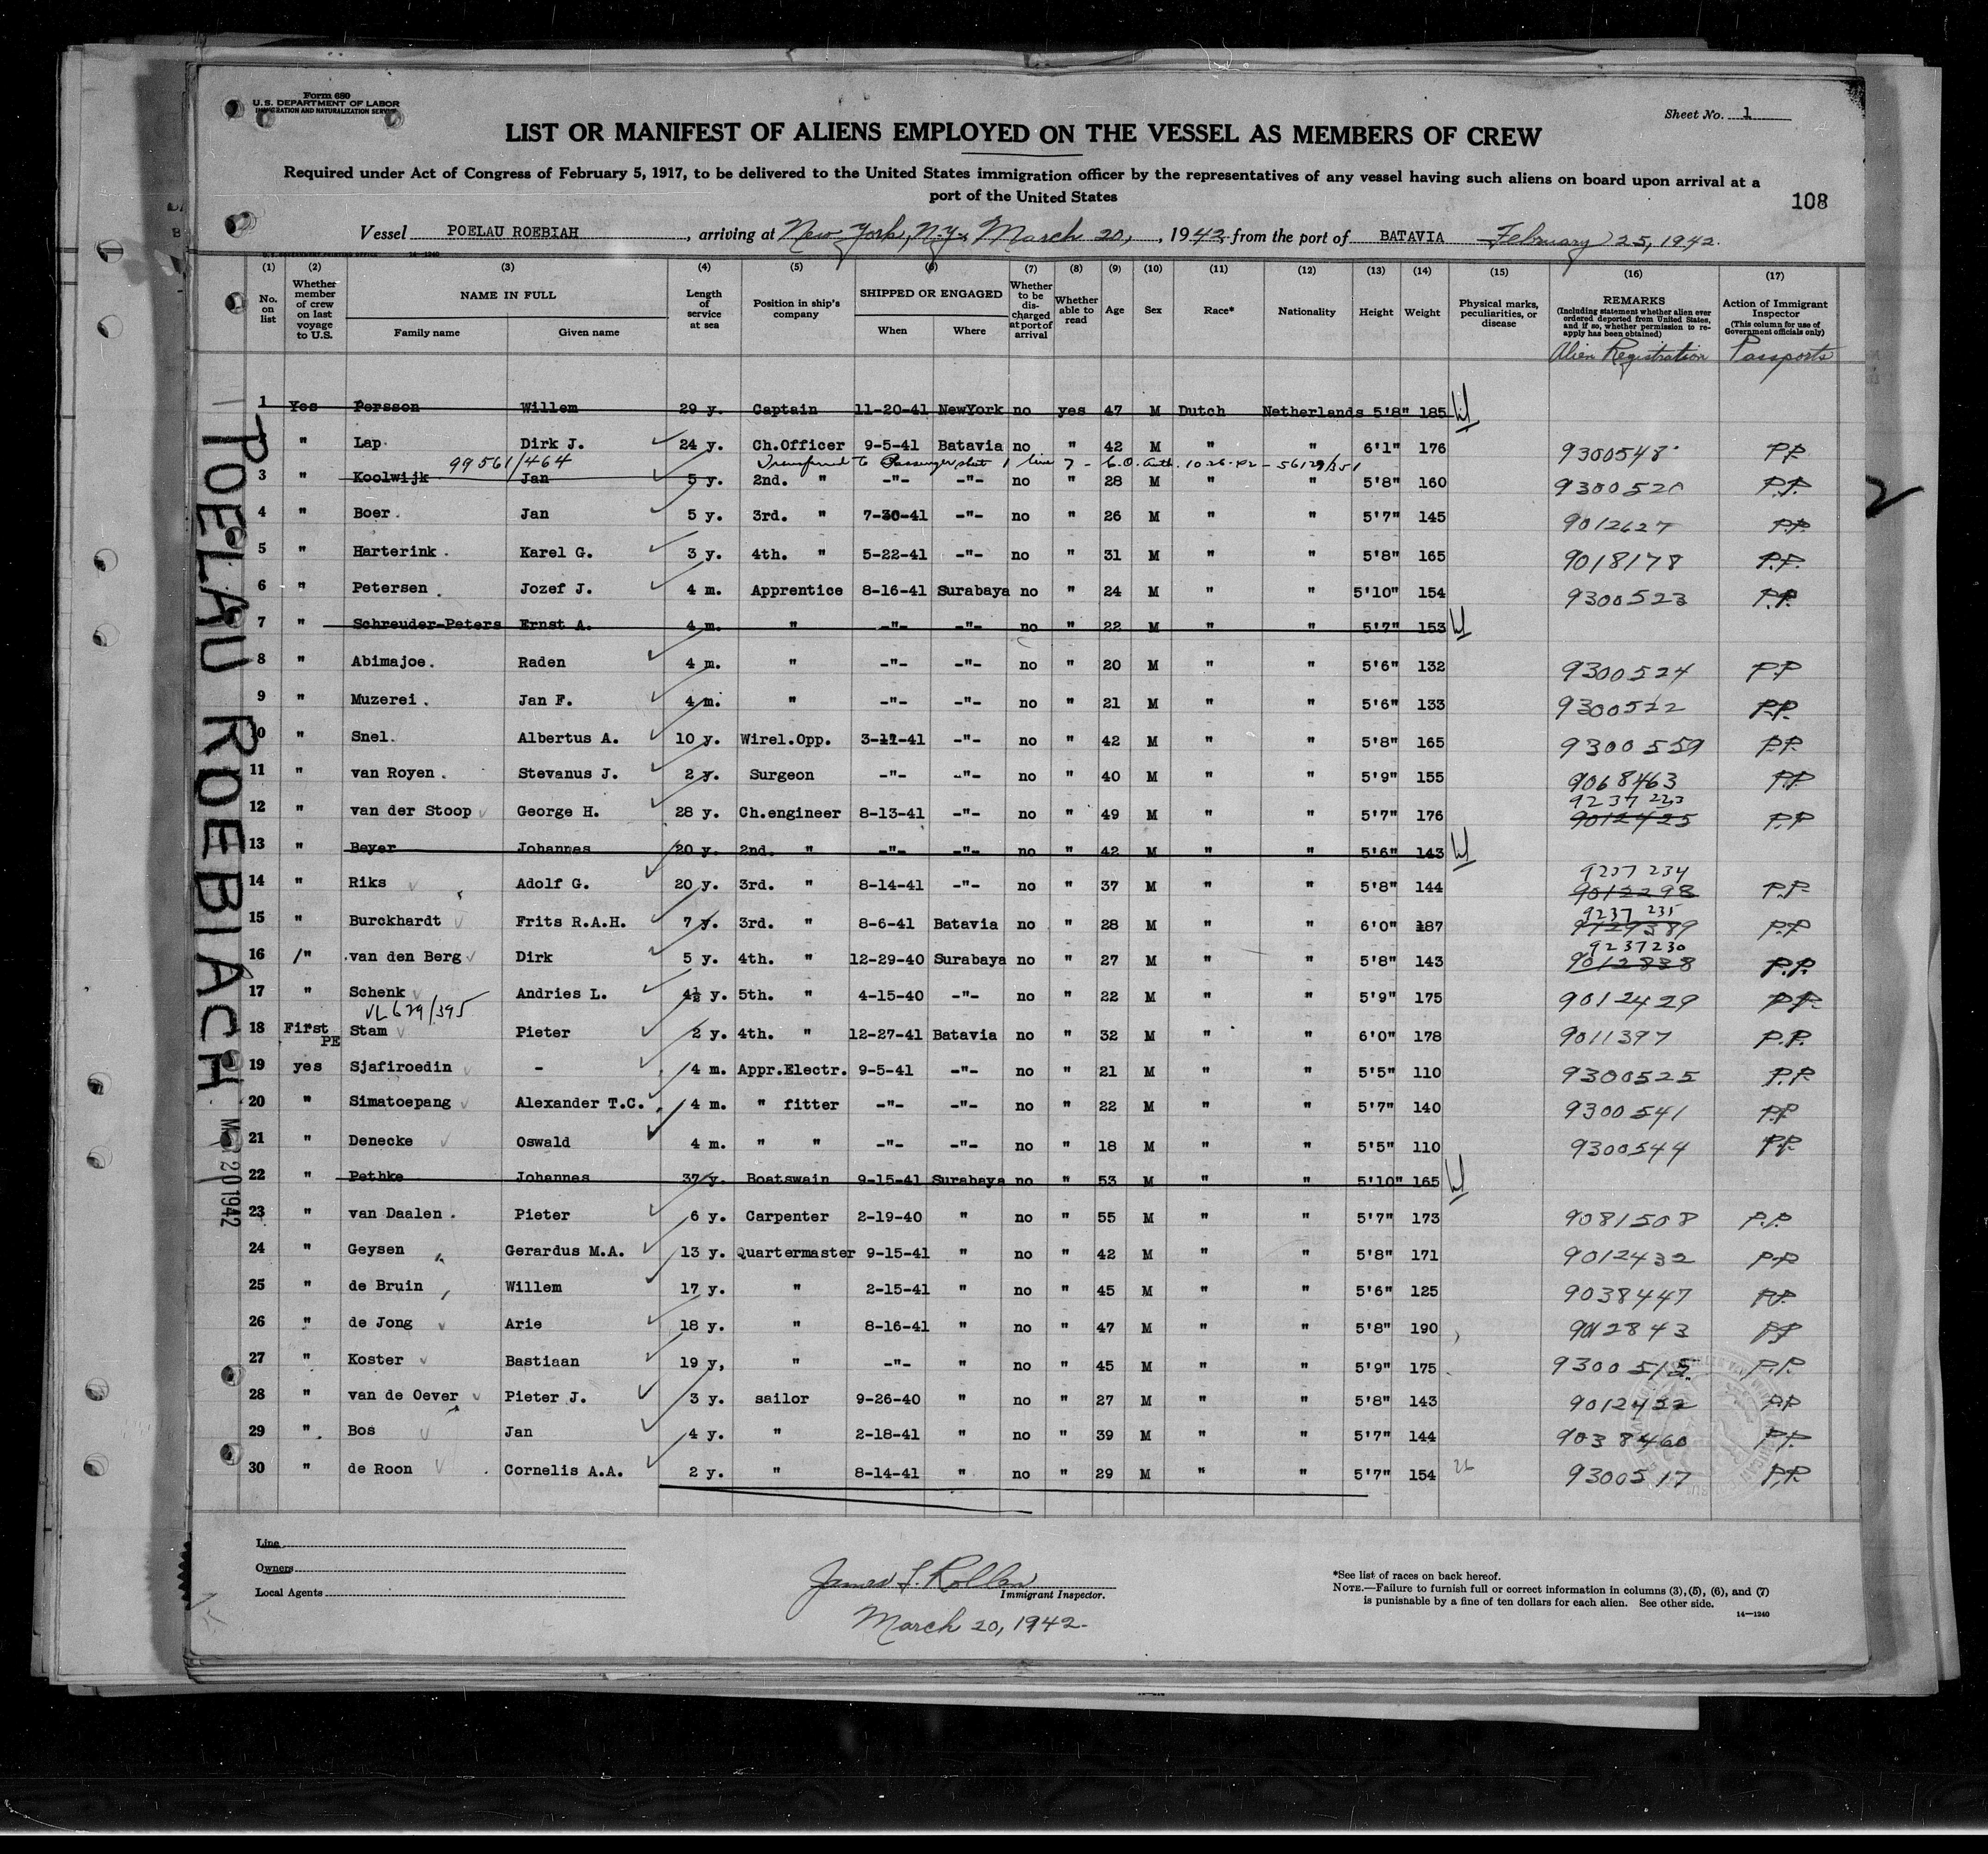 Form 680
U.S. DEPARTMENT OF LABOR
IMMIGRATION AND NATURALIZATION SERVICE
Sheet No. 1
LIST OR MANIFEST OF ALIENS EMPLOYED ON THE VESSEL AS MEMBERS OF CREW
Required under Act of Congress of February 5, 1917, to be delivered to the United States immigration officer by the representatives of any vessel having such aliens on board upon arrival at a
port of the United States
108
Vessel POELAU ROEBIAH, arriving at New York, N.Y. March 20, 1942 from the port of BATAVIA February 25, 1942.
(1) (2) (3) (4) (5) (6) (7) (8) (9) (10) (11) (12) (13) (14) (15) (16) (17)
No. on list
Whether member of crew on last voyage to U.S.
NAME IN FULL
Family name Given name
Length of service at sea
Position in ship's company
SHIPPED OR ENGAGED
When Where
Whether to be discharged at port of arrival
Whether able to read
Age
Sex
Race*
Nationality
Height
Weight
Physical marks, peculiarities, or disease
REMARKS
(Including statement whether alien ever ordered deported from United States, and if so, whether permission to re-apply has been obtained)
Alien Registration
Action of Immigrant Inspector
(This column for use of Government officials only)
Passports
1 Yes Persson Willem 29 y. Captain 11-20-41 NewYork no yes 47 M Dutch Netherlands 5'8" 185
" Lap Dirk J. 24 y. Ch.Officer 9-5-41 Batavia no " 42 M " " 6'1" 176 9300548 P.P.
99561/464 Transferred to Passenger sheet 1 line 7 - C.O. auth. 10-26-42 - 56129/351
3 " Koolwijk Jan 5 y. 2nd. " -"- -"- no " 28 M " " 5'8" 160 9300520 P.P.
4 " Boer Jan 5 y. 3rd. " 7-30-41 -"- no " 26 M " " 5'7" 145 9012627 P.P.
5 " Harterink Karel G. 3 y. 4th. " 5-22-41 -"- no " 31 M " " 5'8" 165 9018178 P.P.
6 " Petersen Jozef J. 4 m. Apprentice 8-16-41 Surabaya no " 24 M " " 5'10" 154 9300523 P.P.
7 " Schreuder-Peters Ernst A. 4 m. " -"- -"- no " 22 M " " 5'7" 153
8 " Abimajoe. Raden 4 m. " -"- -"- no " 20 M " " 5'6" 132 9300524 P.P
9 " Muzerei. Jan F. 4 m. " -"- -"- no " 21 M " " 5'6" 133 9300522 P.P.
10 " Snel. Albertus A. 10 y. Wirel.Opp. 3-12-41 -"- no " 42 M " " 5'8" 165 9300559 P.P.
11 " van Royen. Stevanus J. 2 y. Surgeon -"- -"- no " 40 M " " 5'9" 155 9068463 P.P
9237 223
12 " van der Stoop George H. 28 y. Ch.engineer 8-13-41 -"- no " 49 M " " 5'7" 176 9012425 P.P
13 " Beyer Johannes 20 y. 2nd. " -"- -"- no " 42 M " " 5'6" 143
9237 234
14 " Riks Adolf G. 20 y. 3rd. " 8-14-41 -"- no " 37 M " " 5'8" 144 9012298 P.P.
9237 235
15 " Burckhardt Frits R.A.H. 7 y. 3rd. " 8-6-41 Batavia no " 28 M " " 6'0" 187 9129389 P.P
9237230
16 /" van den Berg Dirk 5 y. 4th. " 12-29-40 Surabaya no " 27 M " " 5'8" 143 9012838 P.P.
17 " Schenk Andries L. 4½ y. 5th. " 4-15-40 -"- no " 22 M " " 5'9" 175 9012429 P.P.
VL 629/395
18 First PE Stam Pieter 2 y. 4th. " 12-27-41 Batavia no " 32 M " " 6'0" 178 9011397 P.P.
19 yes Sjafiroedin - 4 m. Appr.Electr. 9-5-41 -"- no " 21 M " " 5'5" 110 9300525 P.P.
20 " Simatoepang Alexander T.C. 4 m. " fitter -"- -"- no " 22 M " " 5'7" 140 9300541 P.P
21 " Denecke Oswald 4 m. " " -"- -"- no " 18 M " " 5'5" 110 9300544 P.P.
22 " Pethke Johannes 37 y. Boatswain 9-15-41 Surabaya no " 53 M " " 5'10" 165
23 " van Daalen. Pieter 6 y. Carpenter 2-19-40 " no " 55 M " " 5'7" 173 9081508 P.P.
24 " Geysen Gerardus M.A. 13 y. Quartermaster 9-15-41 " no " 42 M " " 5'8" 171 9012432 P.P
25 " de Bruin Willem 17 y. " 2-15-41 " no " 45 M " " 5'6" 125 9038447 P.P.
26 " de Jong Arie 18 y. " 8-16-41 " no " 47 M " " 5'8" 190 9012843 P.P
27 " Koster Bastiaan 19 y, " -"- " no " 45 M " " 5'9" 175 9300515 P.P.
28 " van de Oever Pieter J. 3 y. sailor 9-26-40 " no " 27 M " " 5'8" 143 9012452 P.P
29 " Bos Jan 4 y. " 2-18-41 " no " 39 M " " 5'7" 144 9038460 P.P.
30 " de Roon Cornelis A.A. 2 y. " 8-14-41 " no " 29 M " " 5'7" 154 26 9300517 P.P.
POELAU ROEBIACH
MAR 20 1942
2
Line
Owners
Local Agents
James S. Rollen
Immigrant Inspector.
March 20, 1942.
*See list of races on back hereof.
NOTE.—Failure to furnish full or correct information in columns (3), (5), (6), and (7)
is punishable by a fine of ten dollars for each alien. See other side.
14—1240